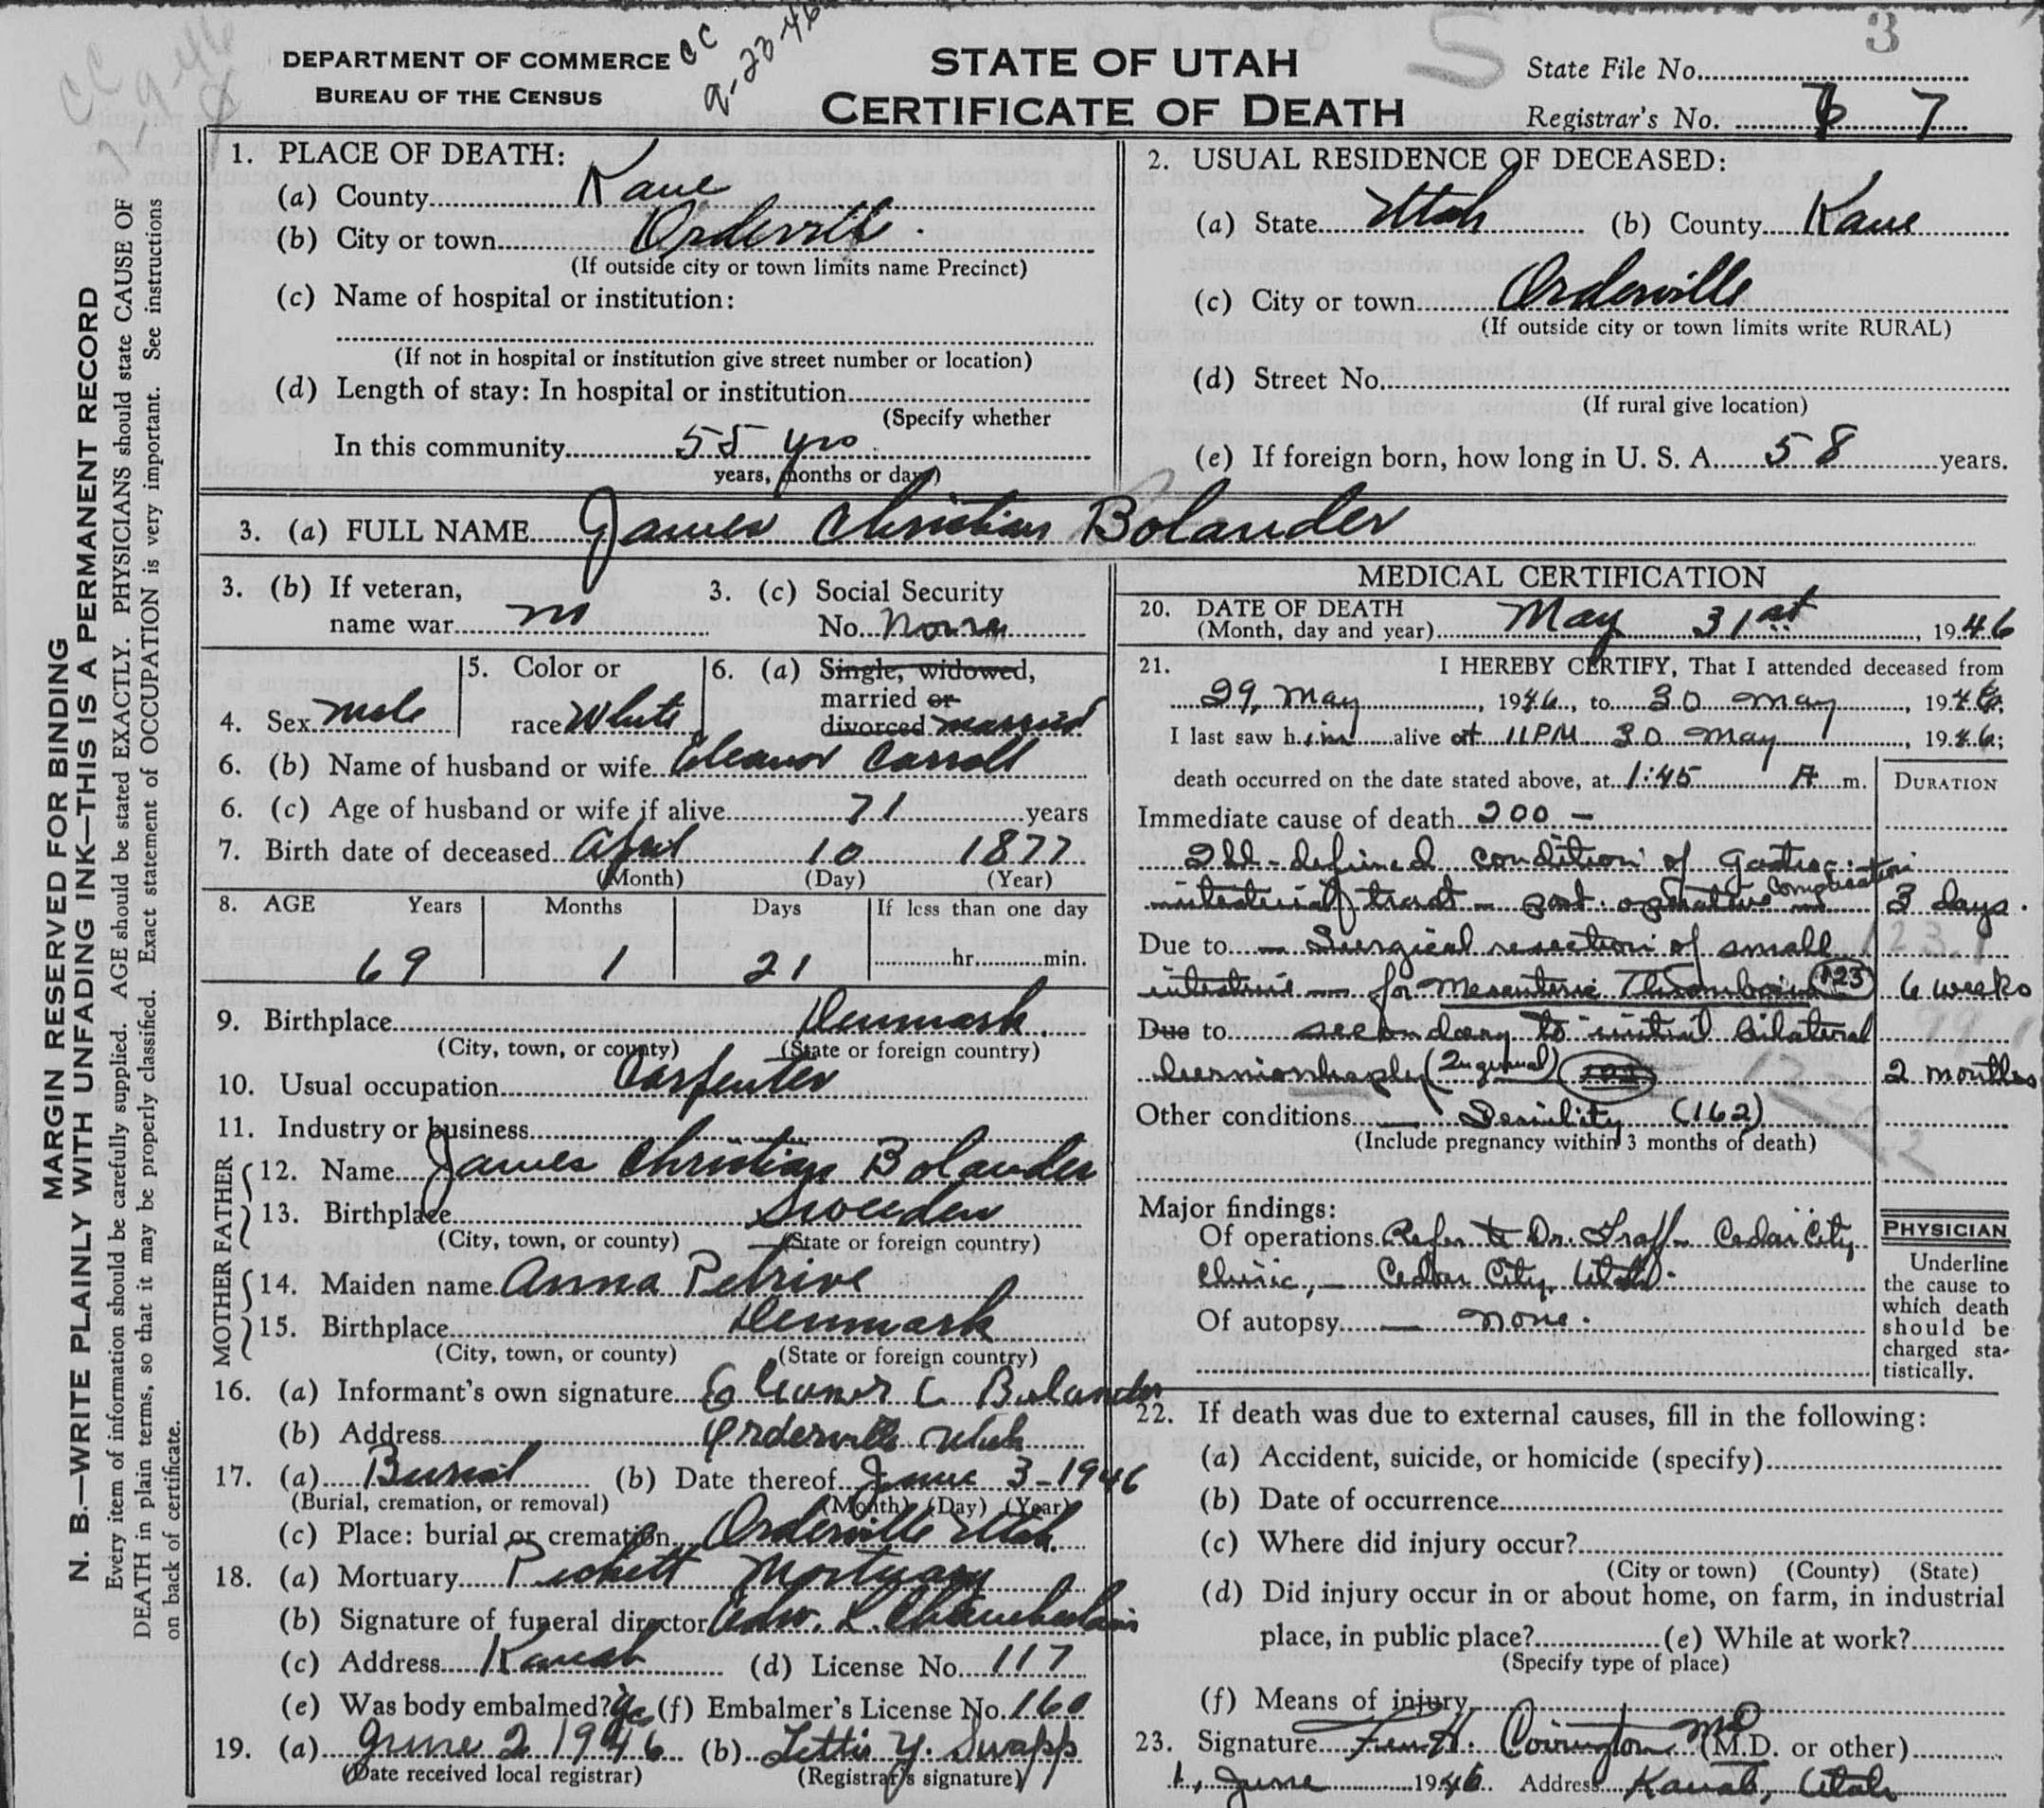 3
CC
9-23-46
CC
DEPARTMENT OF COMMERCE
BUREAU OF THE CENSUS
STATE OF UTAH
CERTIFICATE OF DEATH
S
State File No.
Registrar's No. 7
MARGIN RESERVED FOR BINDING
N. B.—WRITE PLAINLY WITH UNFADING INK—THIS IS A PERMANENT RECORD
Every item of information should be carefully supplied. AGE should be stated EXACTLY. PHYSICIANS should state CAUSE OF
DEATH in plain terms, so that it may be properly classified. Exact statement of OCCUPATION is very important. See instructions
on back of certificate.
1. PLACE OF DEATH:
(a) County Kane
(b) City or town Orderville
(If outside city or town limits name Precinct)
(c) Name of hospital or institution:
(If not in hospital or institution give street number or location)
(d) Length of stay: In hospital or institution
(Specify whether
In this community 55 yrs
years, months or days)
2. USUAL RESIDENCE OF DECEASED:
(a) State Utah (b) County Kane
(c) City or town Orderville
(If outside city or town limits write RURAL)
(d) Street No.
(If rural give location)
(e) If foreign born, how long in U. S. A. 58 years.
3. (a) FULL NAME James Christian Bolander
3. (b) If veteran,
name war no
3. (c) Social Security
No. None
4. Sex male
5. Color or
race White
6. (a) Single, widowed,
married or
divorced married
6. (b) Name of husband or wife Eleanor Carroll
6. (c) Age of husband or wife if alive 71 years
7. Birth date of deceased April 10 1877
(Month) (Day) (Year)
8. AGE Years Months Days If less than one day
69 1 21 hr. min.
9. Birthplace Denmark.
(City, town, or county) (State or foreign country)
10. Usual occupation Carpenter
11. Industry or business
FATHER
12. Name James Christian Bolander
13. Birthplace Sweeden
(City, town, or county) (State or foreign country)
MOTHER
14. Maiden name Anna Petrive
15. Birthplace Denmark
(City, town, or county) (State or foreign country)
16. (a) Informant's own signature Eleanor C Bolander
(b) Address Orderville Utah
17. (a) Burial (b) Date thereof June 3-1946
(Burial, cremation, or removal) (Month) (Day) (Year)
(c) Place: burial or cremation Orderville Utah.
18. (a) Mortuary Pickett Mortuary
(b) Signature of funeral director Edw. L. Chamberlain
(c) Address Kanab (d) License No. 117
(e) Was body embalmed? Yes (f) Embalmer's License No. 160
19. (a) June 2 1946 (b) Lettie Y. Swapp
(Date received local registrar) (Registrar's signature)
MEDICAL CERTIFICATION
20. DATE OF DEATH
(Month, day and year) May 31st, 1946
21. I HEREBY CERTIFY, That I attended deceased from
29, May, 1946, to 30 May, 1946;
I last saw him alive at 11PM 30 May, 1946;
death occurred on the date stated above, at 1:45 A. m.
DURATION
Immediate cause of death 200 —
Ill-defined condition of gastro-
intestinal tract — post operative complication 3 days.
Due to — Surgical resection of small 123.1
intestine — for Mesenteric Thrombosis 123 6 weeks
Due to secondary to initial bilateral 99.1
herniorrhaphy (Inguinal) 2 months
Other conditions — Senility (162)
(Include pregnancy within 3 months of death)
Major findings:
Of operations Refer to Dr. Graff — Cedar City
Clinic, — Cedar City, Utah.
Of autopsy — none.
PHYSICIAN
Underline
the cause to
which death
should be
charged sta-
tistically.
22. If death was due to external causes, fill in the following:
(a) Accident, suicide, or homicide (specify)
(b) Date of occurrence
(c) Where did injury occur?
(City or town) (County) (State)
(d) Did injury occur in or about home, on farm, in industrial
place, in public place? (e) While at work?
(Specify type of place)
(f) Means of injury
23. Signature H. Covington MD (M.D. or other)
1, June 1946 Address Kanab, Utah